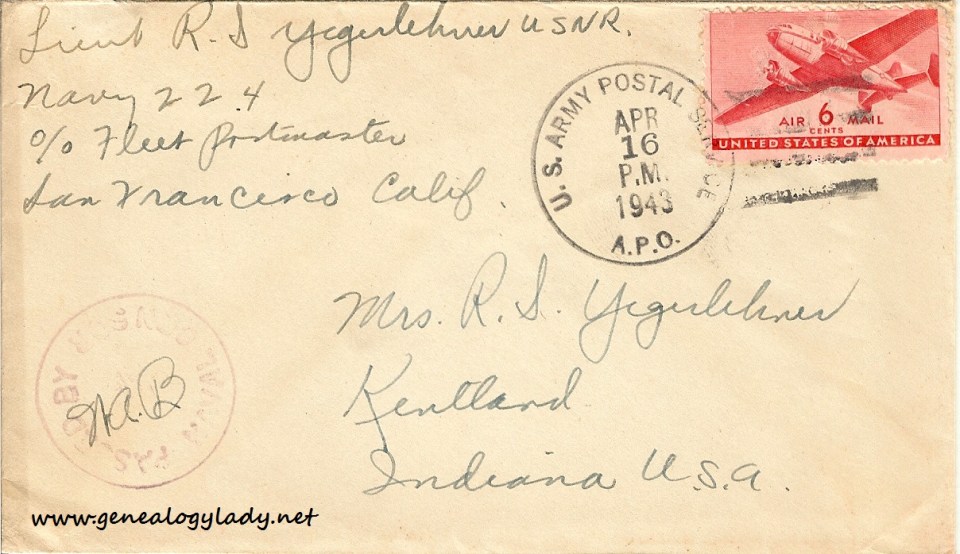 Lieut R. S Yegerlehner USNR.
Navy 224
c/o Fleet Postmaster
San Francisco Calif.
U. S. ARMY POSTAL SERVICE
APR
16
P.M.
1943
A.P.O.
AIR 6 MAIL
CENTS
UNITED STATES OF AMERICA
Mrs. R. S. Yegerlehner
Kentland
Indiana U.S.A.
PASSED BY NAVAL CENSOR
www.genealogylady.net